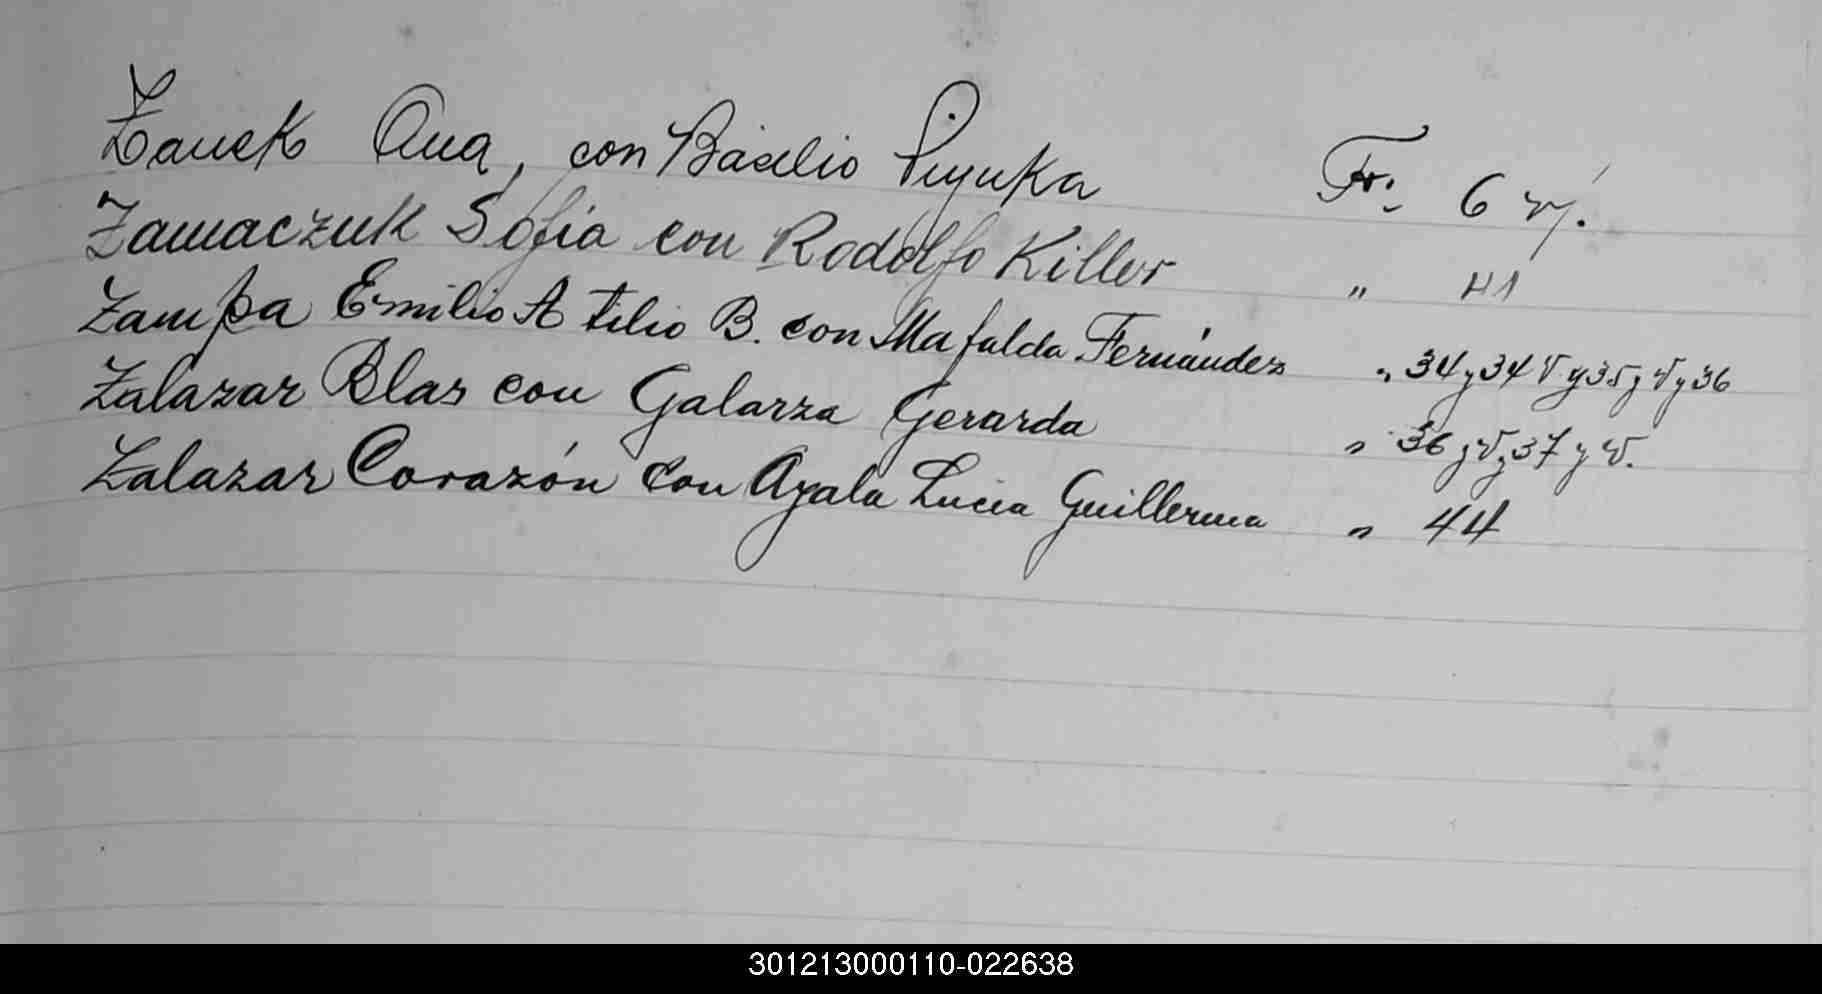 Zanek Ana, con Basilio Piyuka Fr: 6 v/.
Zamaczuk Sofía con Rodolfo Killer " H1
Zampa Emilio Atilio B. con Mafalda Fernández " 34 y 34 v y 35 y v y 36
Zalazar Blas con Galarza Gerarda " 36 y v y 37 y v.
Zalazar Corazón con Ayala Lucia Guillerma " 44
301213000110-022638